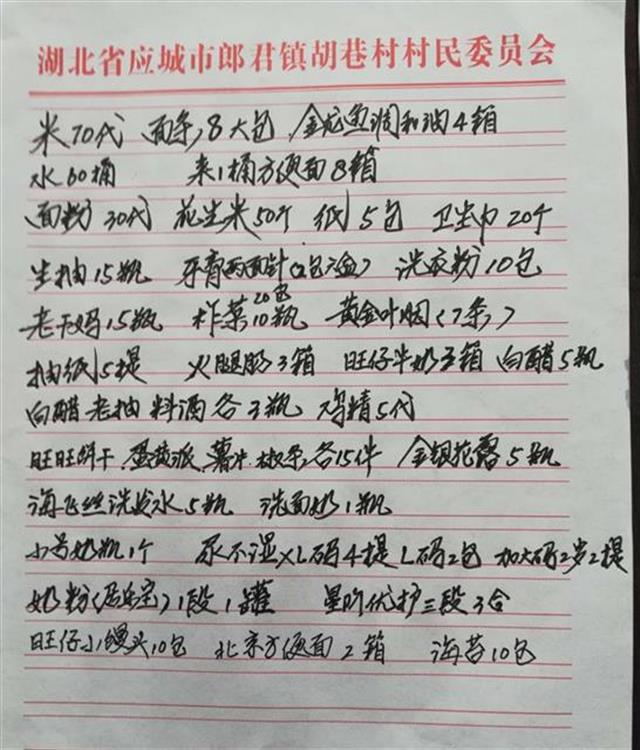 湖北省应城市郎君镇胡巷村村民委员会
米70代 面条8大包 金龙鱼调和油4箱
水60桶 来1桶方便面8箱
面粉30代 花生米50个 纸5包 卫生巾20个
生抽15瓶 牙膏两面针(2包 盒) 洗衣粉10包
老干妈15瓶 柞菜20包10瓶 黄金叶烟(7条)
抽纸5提 火腿肠3箱 旺仔牛奶 箱 白醋5瓶
白醋 老抽 料酒各3瓶 鸡精5代
旺旺饼干 蛋黄派.薯片. 各15件 金银花露5瓶
海飞丝洗发水5瓶 洗面奶1瓶
小号奶瓶1个 尿不湿XL码4提 L码2包 加大码2岁2提
奶粉( )1段1罐 星阶优护三段3合
旺仔小馒头10包 北京方便面2箱 海苔10包